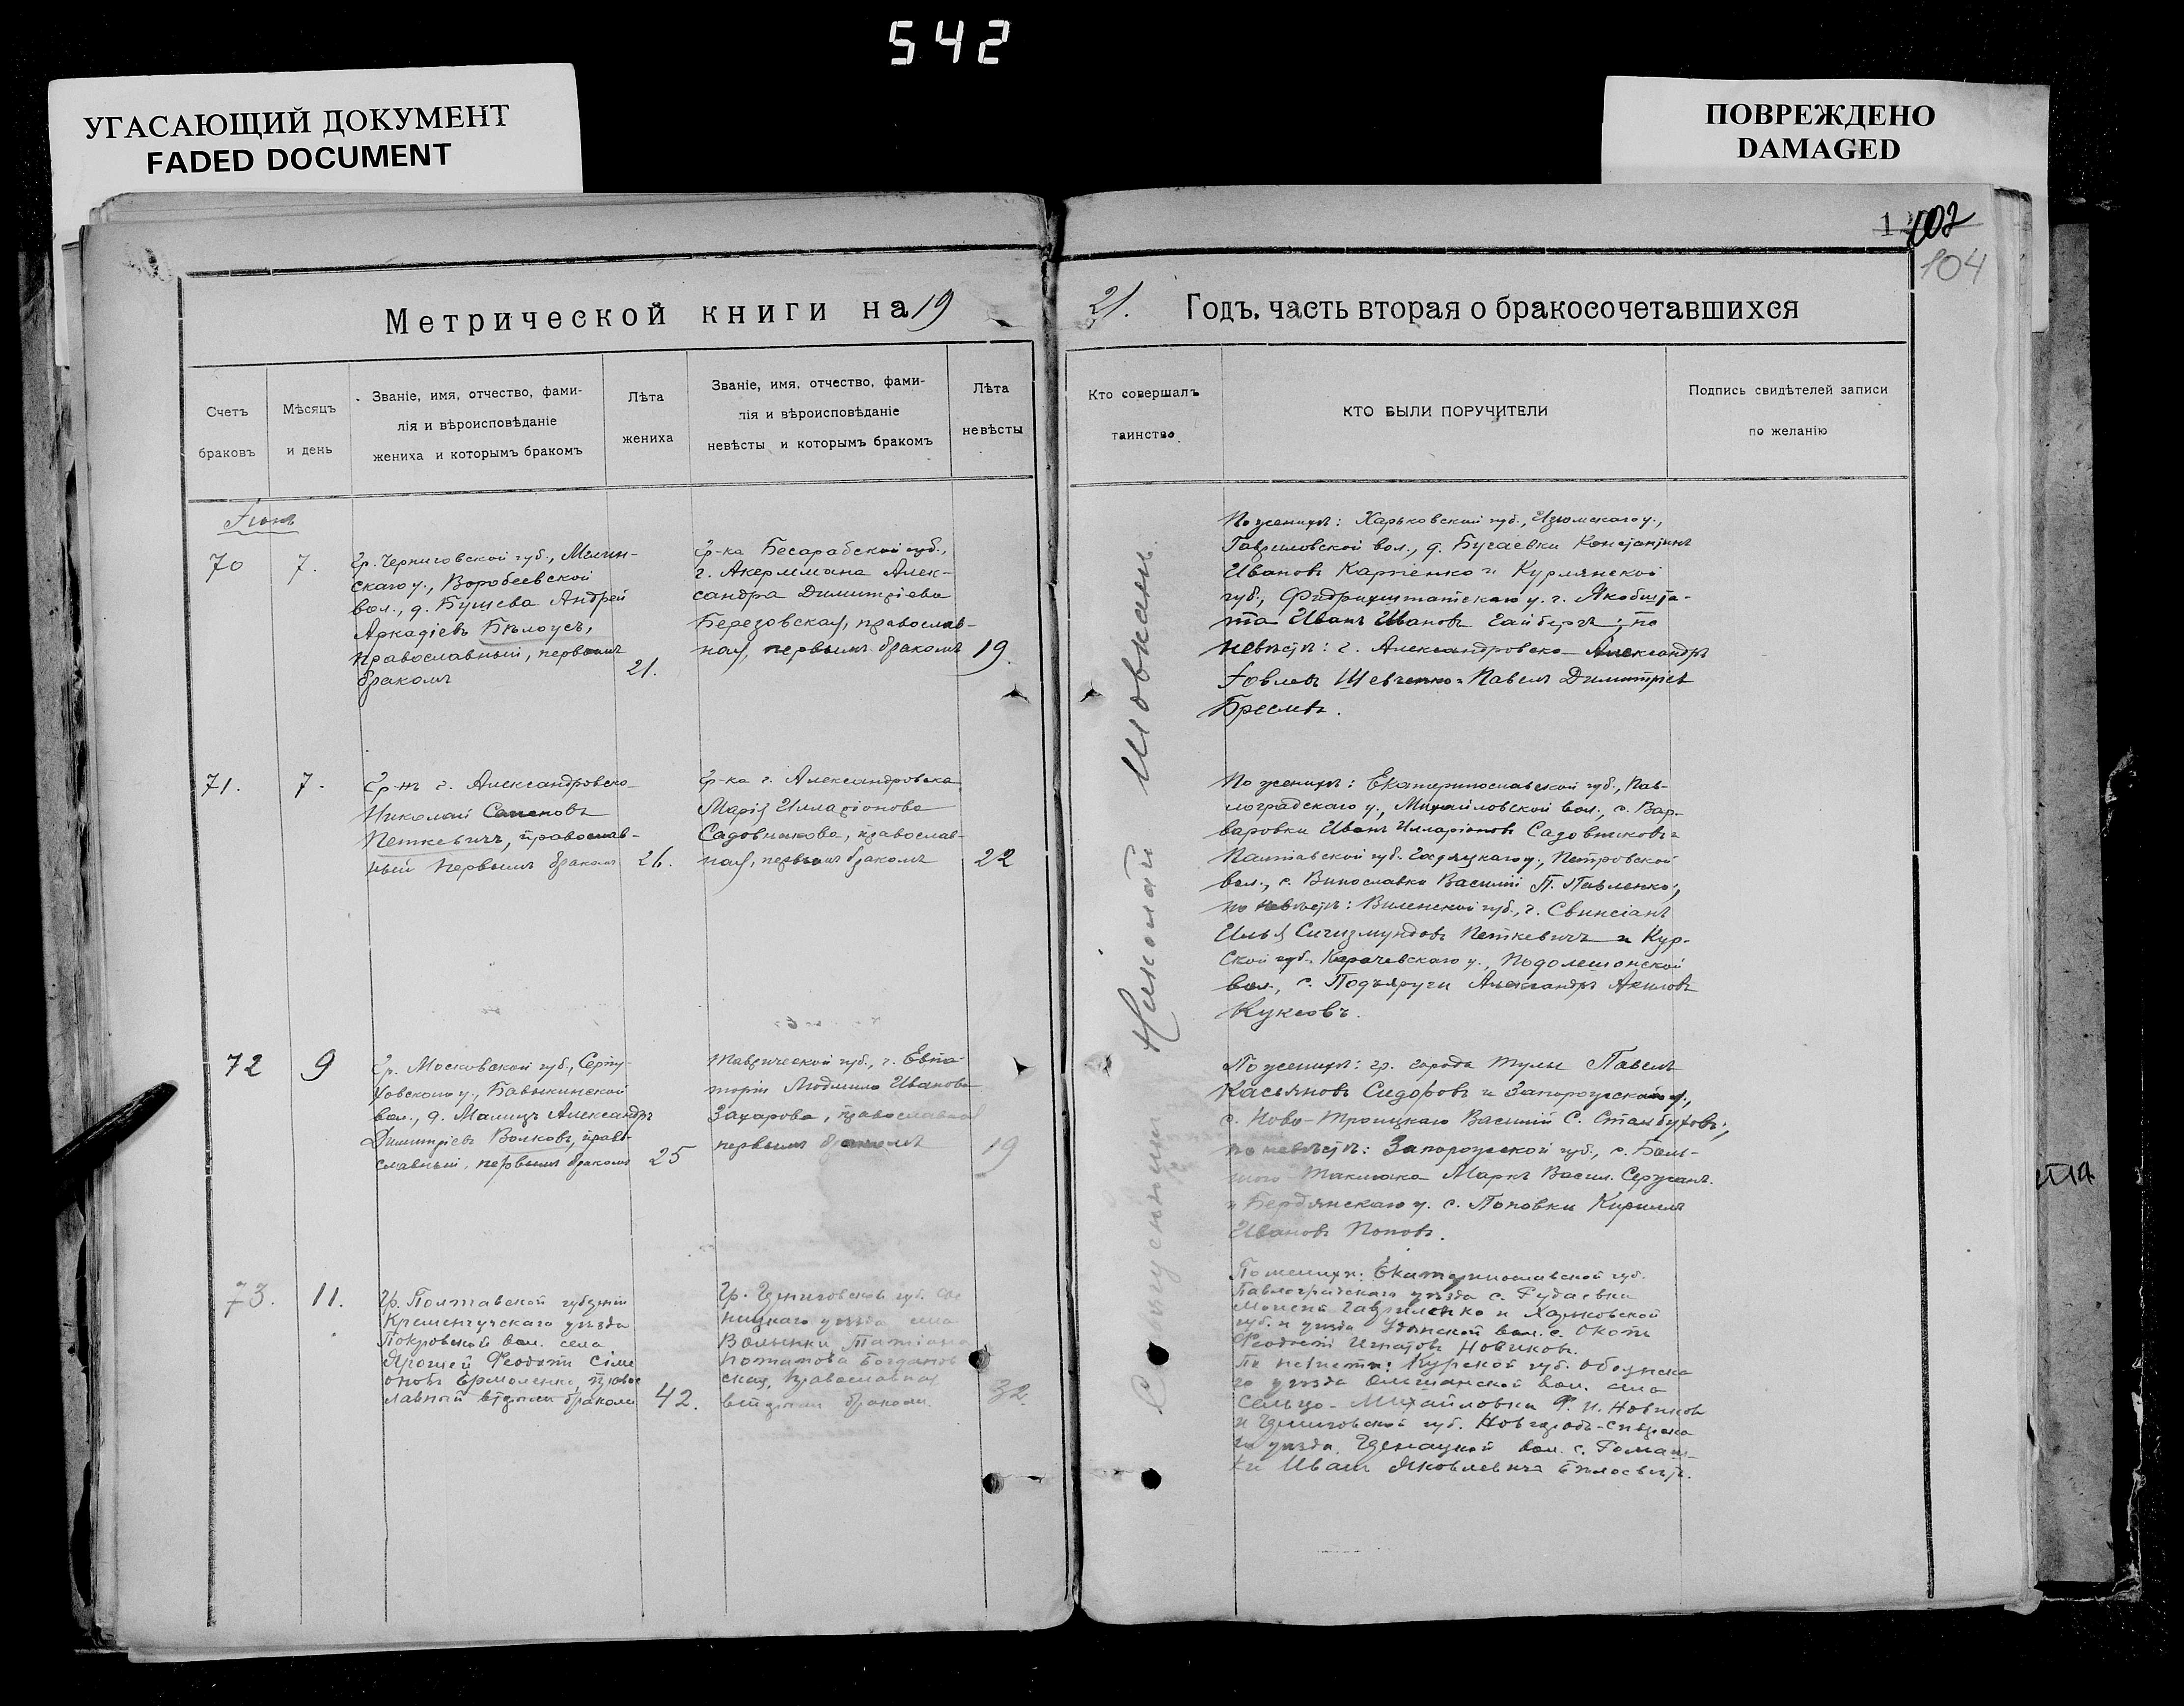 542
УГАСАЮЩИЙ ДОКУМЕНТ
FADED DOCUMENT
ПОВРЕЖДЕНО
DAMAGED
102
104
Метрической книги на 19
21. Годъ, часть вторая о бракосочетавшихся
Счетъ
браковъ
Мѣсяцъ
и день
Званіе, имя, отчество, фами-
лія и вѣроисповѣданіе
жениха и которымъ бракомъ
Лѣта
жениха
Званіе, имя, отчество, фами-
лія и вѣроисповѣданіе
невѣсты и которымъ бракомъ
Лѣта
невѣсты
Кто совершалъ
таинство.
КТО БЫЛИ ПОРУЧИТЕЛИ
Подпись свидѣтелей записи
по желанію
70
7.
Гр. Черниговской губ., Мглин-
скаго у., Воробеевской
вол., д. Бушева Андрей
Аркадіевъ Бѣлоусъ,
православный, первымъ
бракомъ
21.
Гр-ка Бесарабской губ.,
г. Акермана Алек-
сандра Димитріева
Березовская, православ-
ная, первымъ бракомъ
19.
По женихѣ: Харьковской губ., Изюмскаго у.,
Гавриловской вол., д. Бугаевки Константинъ
Ивановъ Карпенко и Курлянской
губ., г. Якобшта-
та Иванъ Ивановъ; по
невѣстѣ: г. Александровска Александръ
Іовлевъ Шевченко и Павелъ Димитріевъ
71.
7.
Гр-нъ г. Александровска
Николай
Петкевичъ, православ-
ный первымъ бракомъ
26.
Гр-ка г. Александровска
Марія Илларіонова
Садовникова, православ-
ная, первымъ бракомъ
22
По женихѣ: Екатеринославской губ., Пав-
лоградскаго у., Михайловской вол., с. Вар-
варовки Иванъ Илларіоновъ Садовниковъ и
Полтавской губ. Гадяцкаго у., Петровской
вол., с. Василій П. Павленко;
по невѣстѣ: Виленской губ., г. Свинсіанъ
Илья Сигизмундовъ Петкевичъ и Кур-
ской губ. у.,
вол., с. Подъяруги Александръ Акиловъ
Куксовъ.
72
9
Гр. Московской губ., Серпу-
ховскаго у., Бавыкинской
вол., д. Александръ
Димитріевъ Волковъ, право-
славный, первымъ бракомъ
25
Таврической губ., г. Евпа-
торіи Людмила Иванова
Захарова, православная
первымъ бракомъ
19
По женихѣ: гр. города Тулы Павелъ
Касьяновъ Сидоровъ и Запорожскаго у.,
с. Ново-Троицкаго Василій С. Стамбуховъ;
по невѣстѣ: Запорожской губ., с. Боль-
шого-Токмака Маркъ Васил. Сержанъ.
и Бердянскаго у. с. Поповки Кириллъ
Ивановъ Поповъ.
73.
11.
Гр. Полтавской губерніи
Кременчугскаго уѣзда
Покровской вол. села
Федотъ Симе
оновъ Ермоленко, право
славный вторымъ бракомъ
42.
Гр. Черниговской губ. Сос
ницкаго уѣзда села
Волынки Татіана
Потапова Богданов
ская, православная
вторымъ бракомъ.
32.
По женихѣ: Екатеринославской губ.
Павлоградскаго уѣзда с.
Моисей Гавриленко и Харьковской
губ. и уѣзда вол. с.
Феодосій Игнатовъ Новиковъ.
По невѣстѣ: Курской губ. Обоянска
го уѣзда Ольшанской вол. села
Сельцо-Михайловки Ф. И. Новиковъ
и Черниговской губ. Новгородъ-Сѣверска
го уѣзда, вол. с.
Иванъ Яковлевичъ
Священникъ Николай Шовкань.